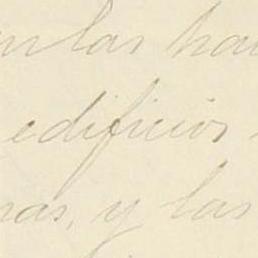 en las ha
edificios
nas, y las